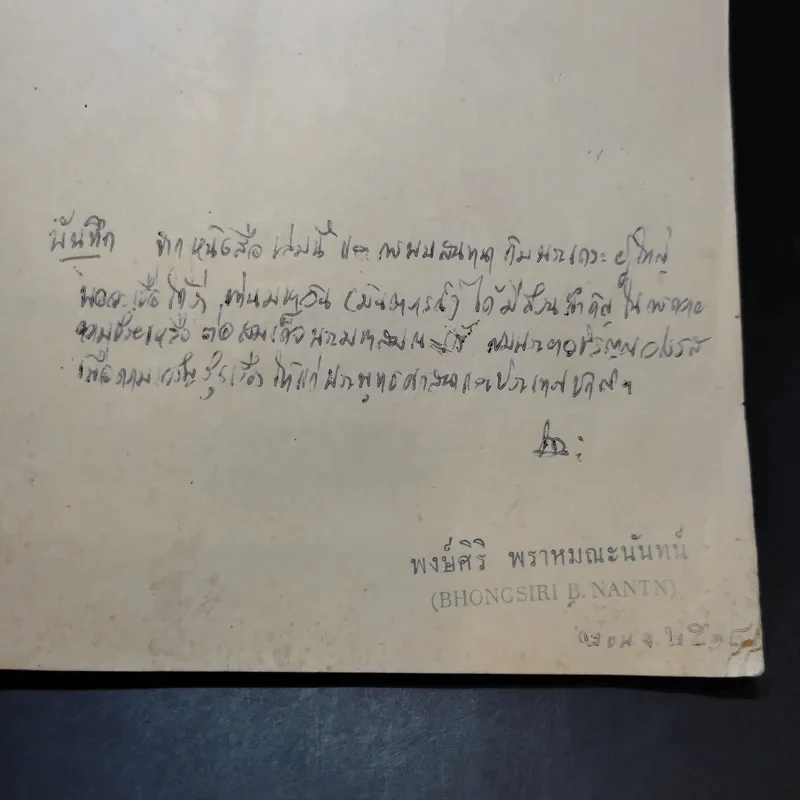 บันทึก จากหนังสือเล่มนี้ และการพบสนทนากับพระเถระผู้ใหญ่
พอจะเชื่อได้ว่า ท่านมหาวัน (มันตาภรณ์) ได้มีส่วนสำคัญในการถวาย
ความช่วยเหลือต่อสมเด็จพระมหาสมณ
เพื่อความเจริญรุ่งเรืองให้แก่พระพุทธศาสนาและประเทศชาติฯ
พงษ์ศิริ พราหมณะนันทน์
(BHONGSIRI B. NANTN)